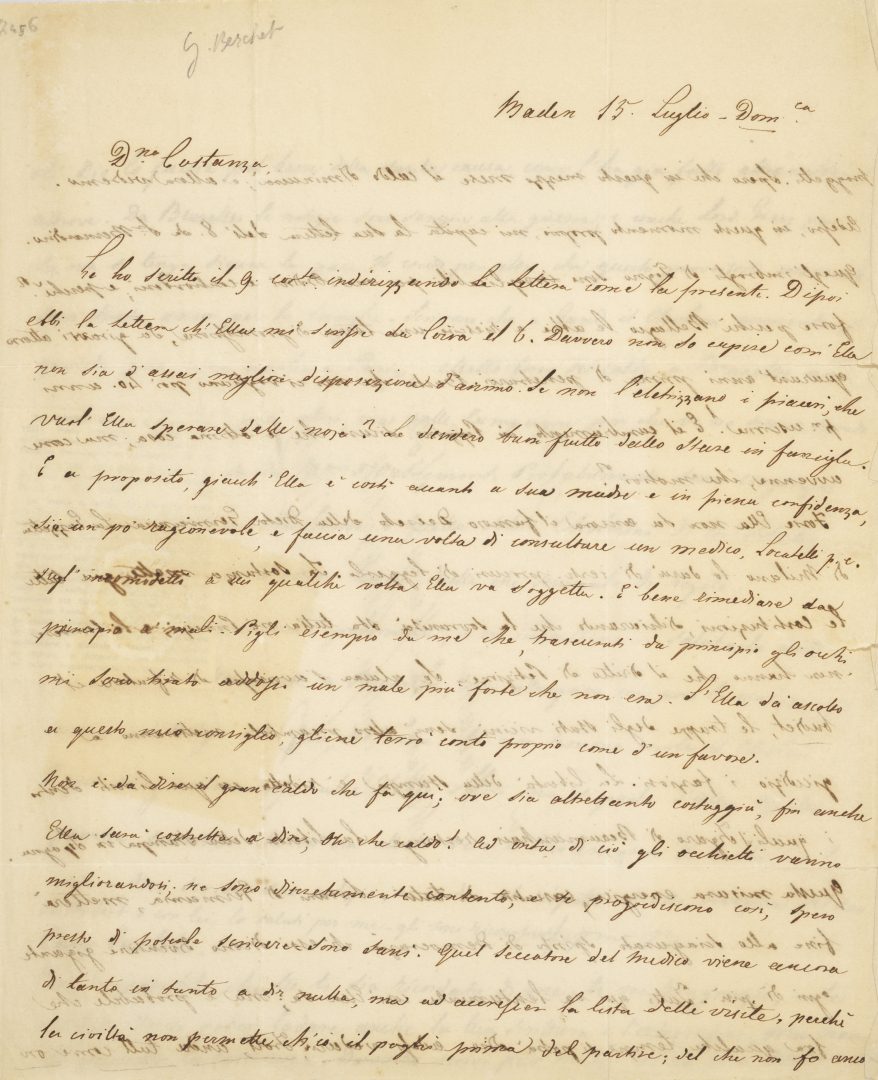 2456
G. Berchet
Baden 15. Luglio - Dom.ca
D.na Costanza
Le ho scritto il 9 costì indirizzando la lettera come la presente. Dipoi
ebbi la lettera ch'Ella mi scrisse da Coira il 6. Davvero non so capire com'Ella
non sia d'assai migliore disposizione d'animo. Se non l'eletrizzano i piaceri, che
vuol'Ella sperare dalle noje? Le desidero buon frutto dallo stare in famiglia.
E a proposito, giacch'Ella è costì accanto a sua madre e in piena confidenza,
sia un po' ragionevole, e faccia una volta di consultare un medico, Locatelli p.e.
sugl'incomodetti a cui qualche volta Ella va soggetta. È bene rimediare da
principio a' mali. Pigli esempio da me che, trascurati da principio gli occhi
mi sono tirato addosso un male più forte che non era. S'Ella dà ascolto
a questo mio consiglio, gliene terrò conto proprio come d'un favore.
Non è da dire il gran caldo che fa qui; ove sia altrettanto costaggiù, fin anche
Ella sarà costretta a dire, Oh che caldo! Ad onta di ciò gli occhietti vanno
migliorandosi; ne sono discretamente contento, e se progrediscono così, spero
presto di poterle scrivere = sono sani. Quel seccatore del medico viene ancora
di tanto in tanto a dir nulla, ma ad accrescer la lista delle visite, perchè
la civiltà non permette ch'io il paghi prima del partire; del che non fo anco